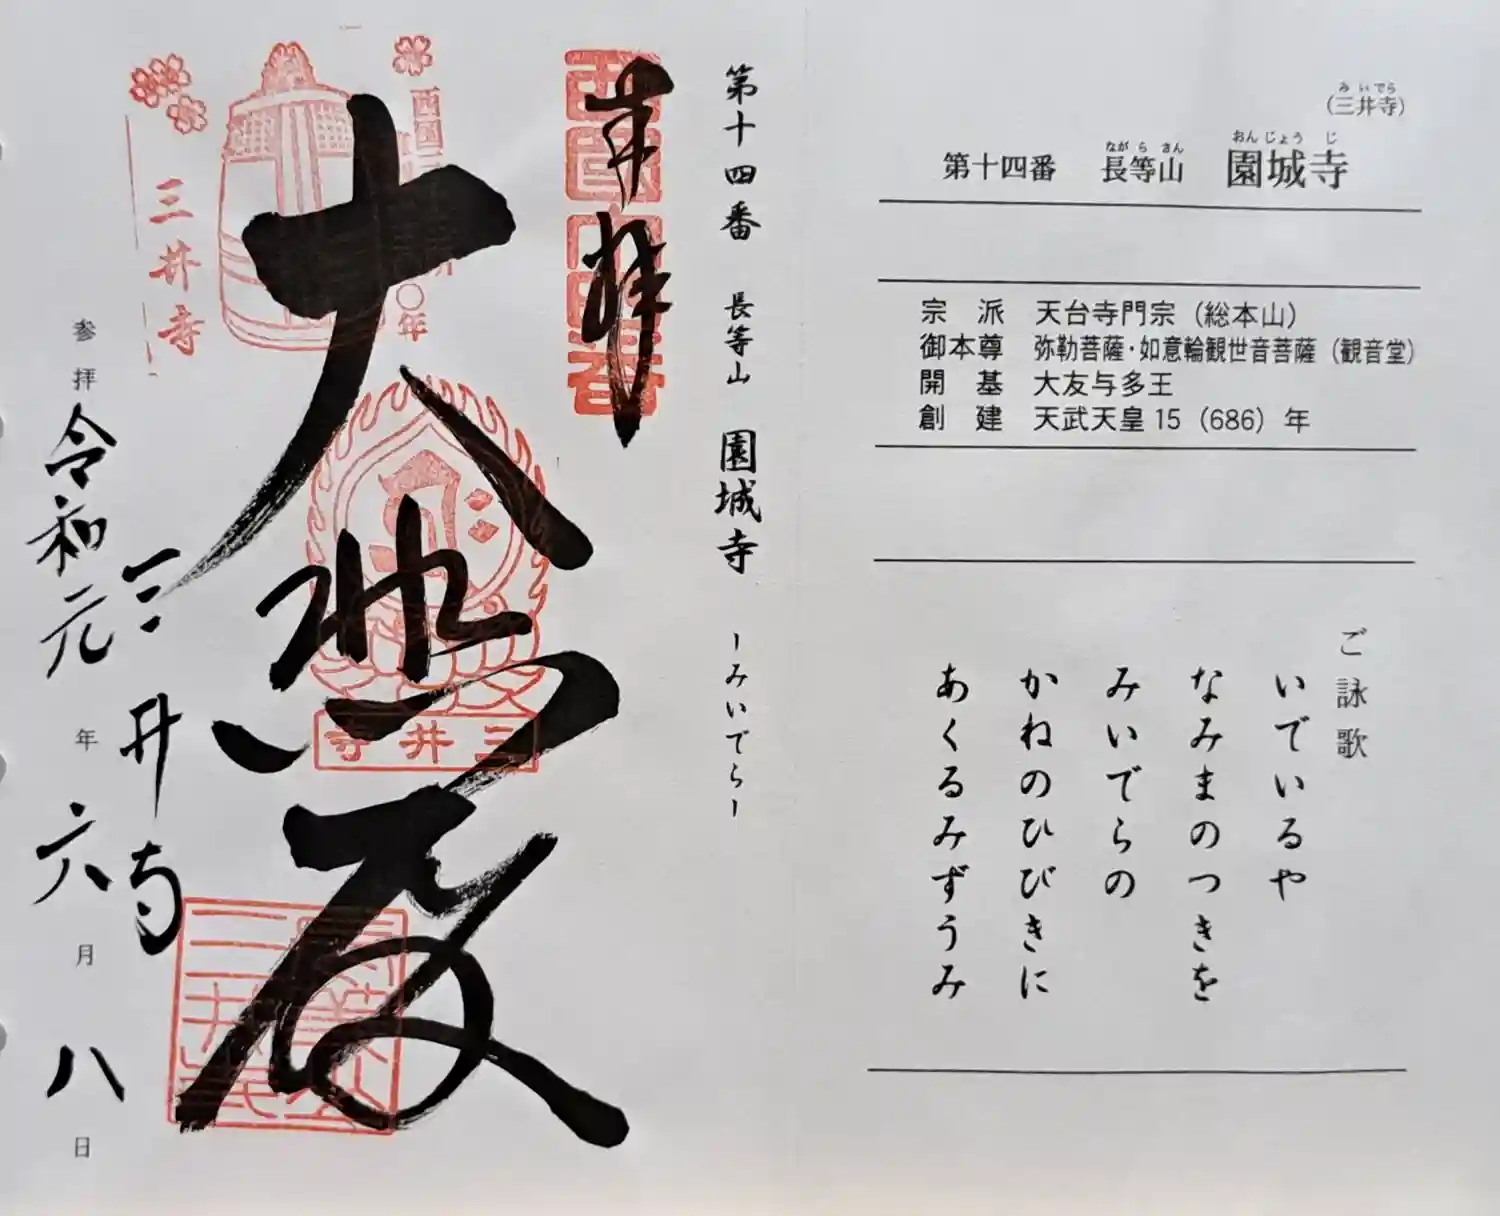 (三井寺)
みいでら
第十四番 長等山 園城寺
ながらさん おんじょうじ
宗派 天台寺門宗(総本山)
御本尊 弥勒菩薩・如意輪観世音菩薩(観音堂)
開基 大友与多王
創建 天武天皇15(686)年
ご詠歌
いでいるや
なみまのつきを
みいでらの
かねのひびきに
あくるみずうみ
第十四番 長等山 園城寺 ーみいでらー
奉拝
西国十四番
大悲殿
三井寺
三井寺
三井寺
参拝 令和元年六月八日